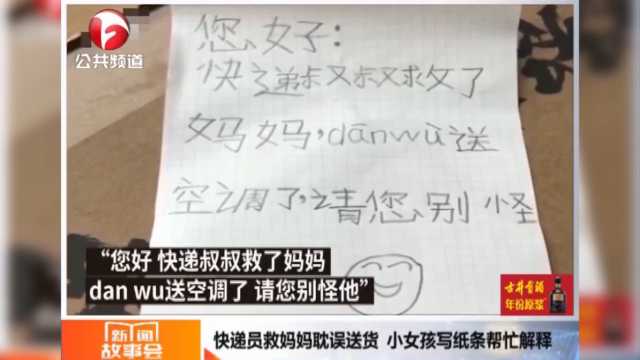 公共频道
您好：
快递叔叔救了
妈妈，dānwù送
空调了，请您别怪
“您好 快递叔叔救了妈妈
dan wu送空调了 请您别怪他”
古井贡酒
年份原浆
新闻
故事会
快递员救妈妈耽误送货 小女孩写纸条帮忙解释